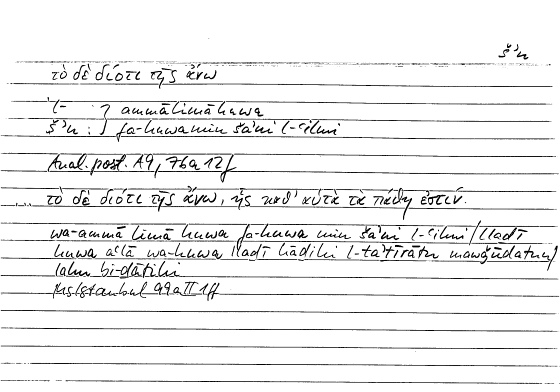 š'n
τὸ δὲ διότι τῆς ἄνω
'l- } ammā limā huwa
š'n : } fa-huwa min ša'ni l-ʿilmi
Anal. post. A9, 76a 12f
... τὸ δὲ διότι τῆς ἄνω, ἧς καθ' αὑτὰ τὰ πάθη ἐστίν.
wa-ammā limā huwa fa-huwa min ša'ni l-ʿilmi / lladī
huwa aʿlā wa-huwa lladī hādihi l-ta'tīrātu mawǧūdatun /
lahu bi-dātihi
Ms Istanbul 99a II 1ff